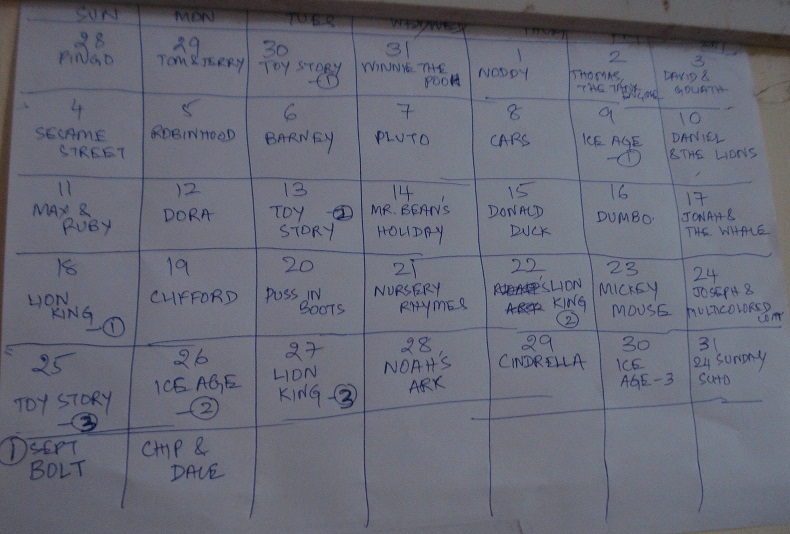 SUN MON TUES WEDNES THURS
28 29 30 31 1 2 3
PINGO TOM & JERRY TOY STORY ① WINNIE THE POOH NODDY THOMAS, THE TANK ENGINE DAVID & GOLIATH
4 5 6 7 8 9 10
SECAME STREET ROBINHOOD BARNEY PLUTO CARS ICE AGE ① DANIEL & THE LIONS
11 12 13 14 15 16 17
MAX & RUBY DORA TOY STORY ② MR. BEAN'S HOLIDAY DONALD DUCK DUMBO JONAH & THE WHALE
18 19 20 21 22 23 24
LION KING ① CLIFFORD PUSS IN BOOTS NURSERY RHYMES LION KING ② MICKEY MOUSE JOSEPH & MULTICOLORED COAT
25 26 27 28 29 30 31
TOY STORY ③ ICE AGE ② LION KING ③ NOAH'S ARK CINDRELLA ICE AGE - 3 24 SUNDAY SCHO
① SEPT BOLT CHIP & DALE